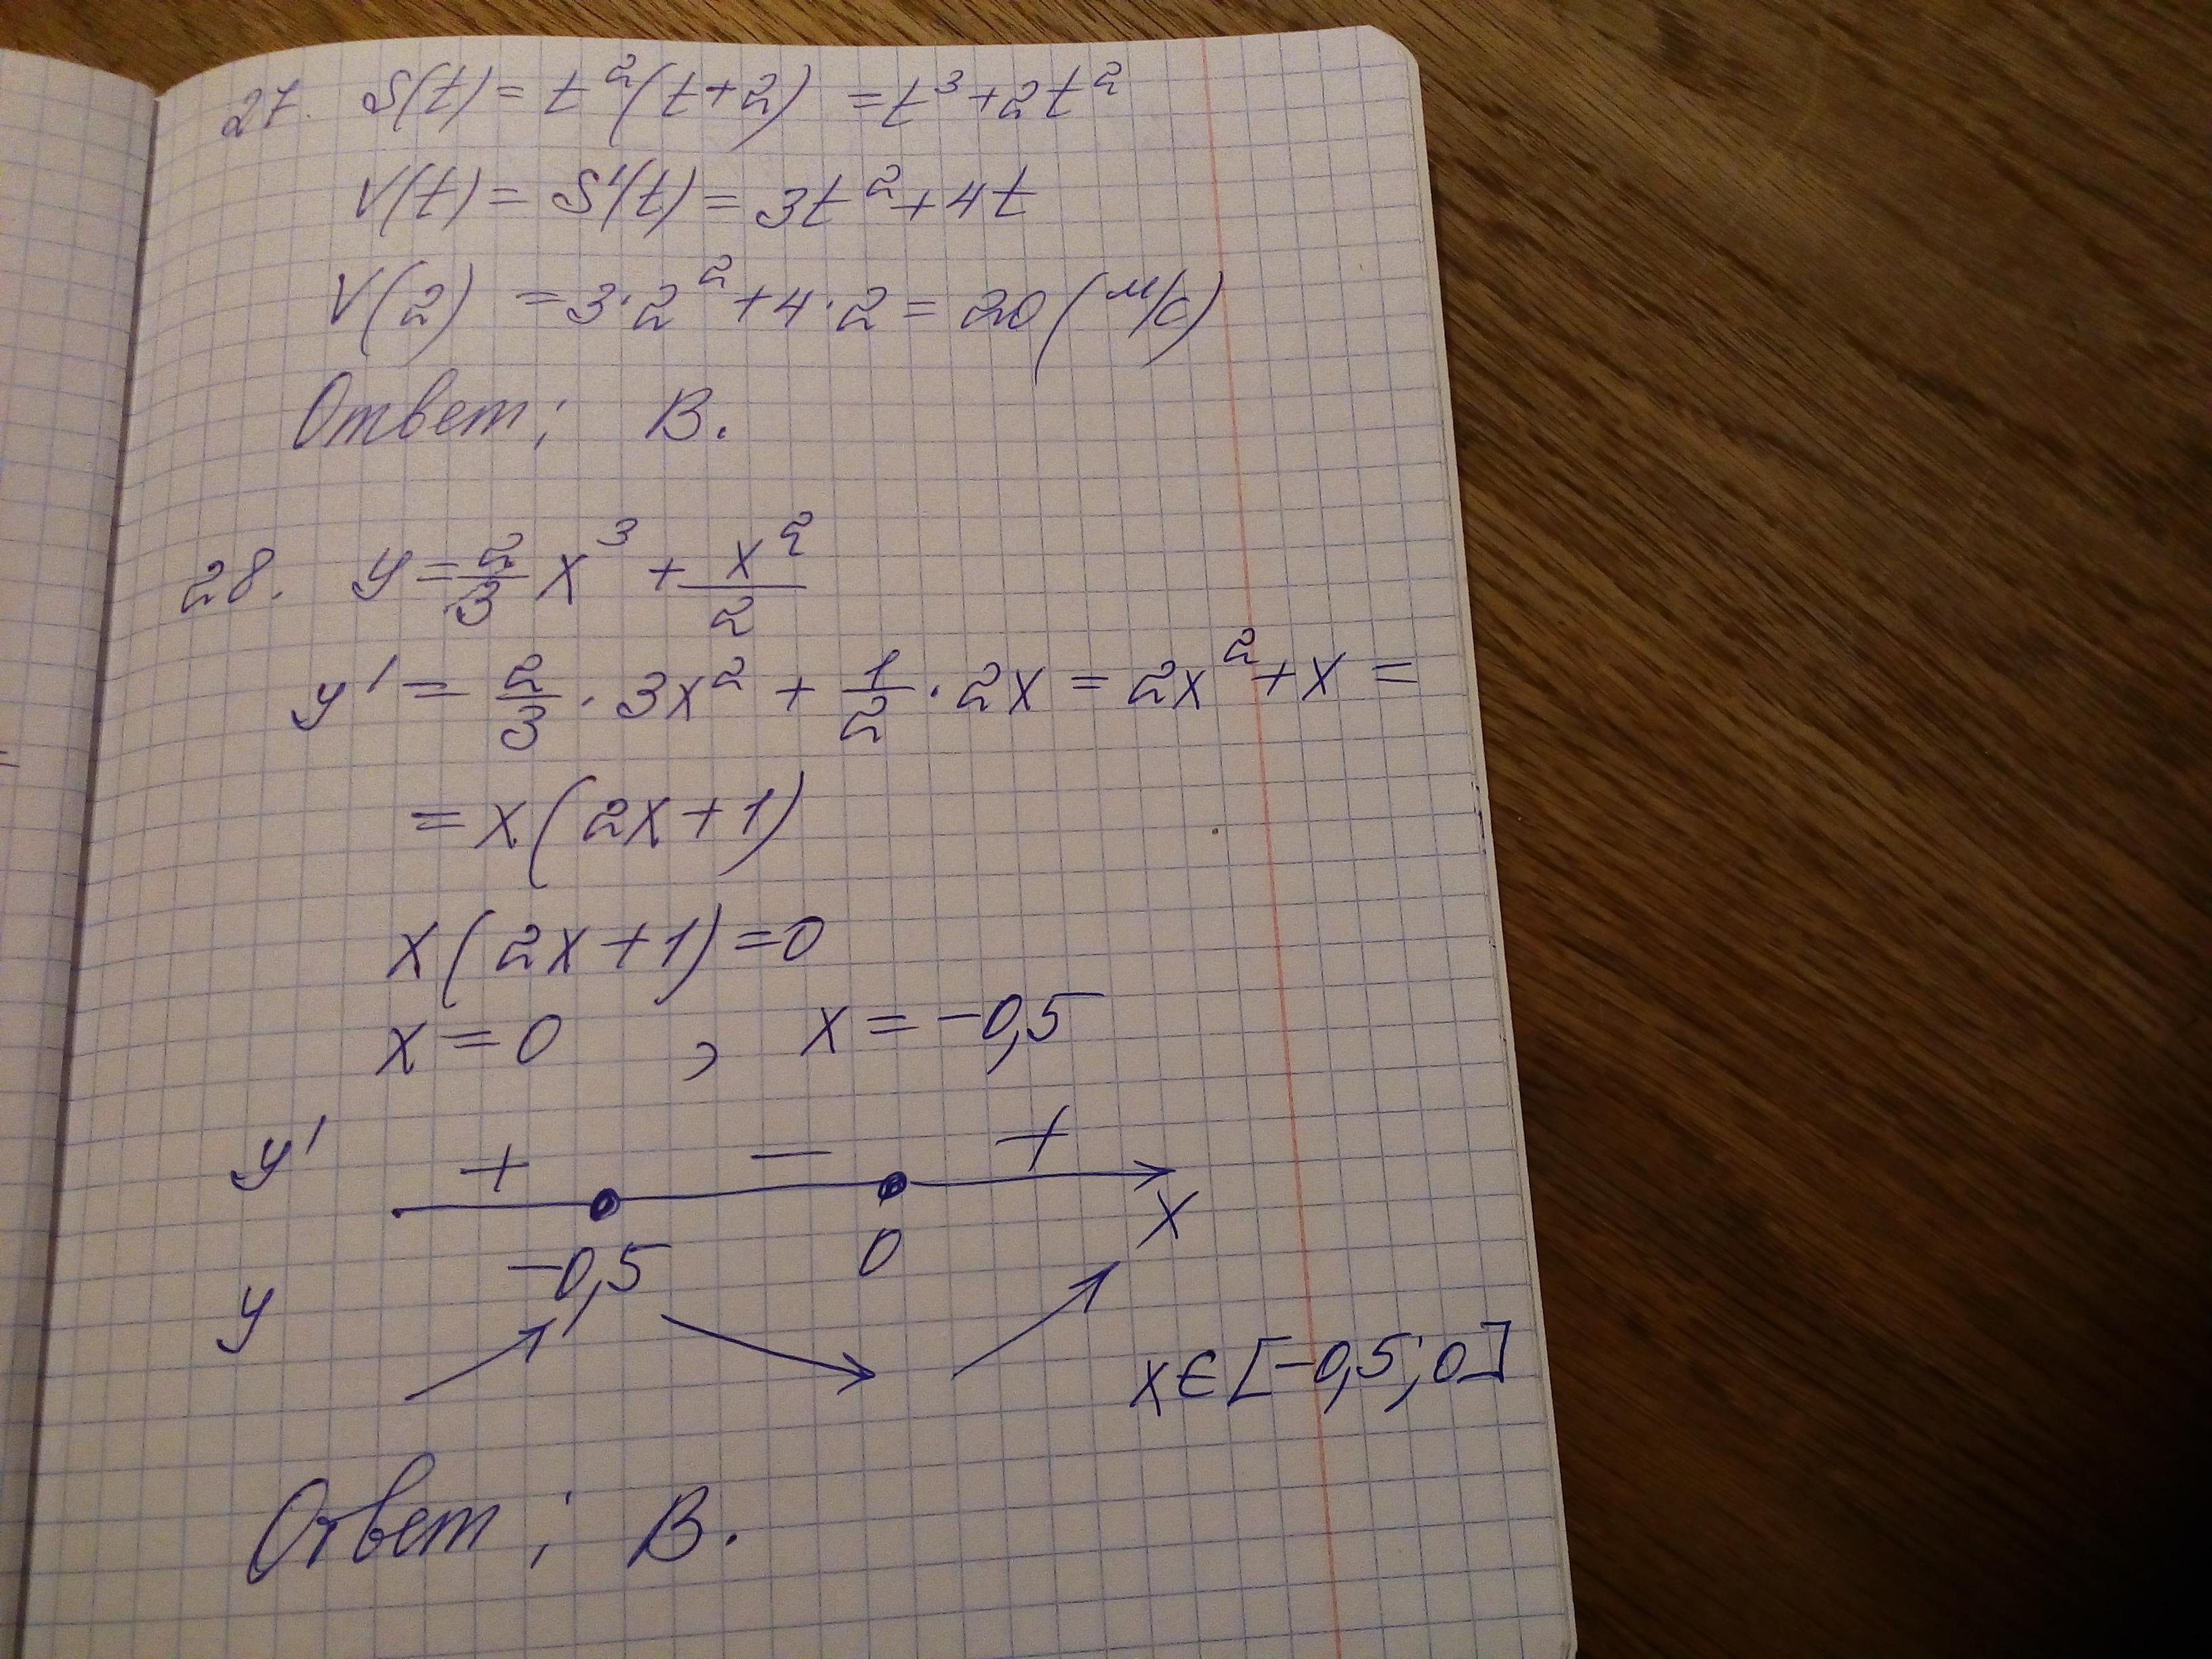 27. S(t) = t²(t+2) = t³+2t²
V(t) = S'(t) = 3t²+4t
V(2) = 3·2²+4·2 = 20 (м/с)
Ответ: В.
28. y = 2/3 x³ + x²/2
y' = 2/3 · 3x² + 1/2 · 2x = 2x²+x =
= x(2x+1)
x(2x+1)=0
x = 0 , x = -0,5
y' + - +
-0,5 0 x
y
x∈[-0,5;0]
Ответ: В.